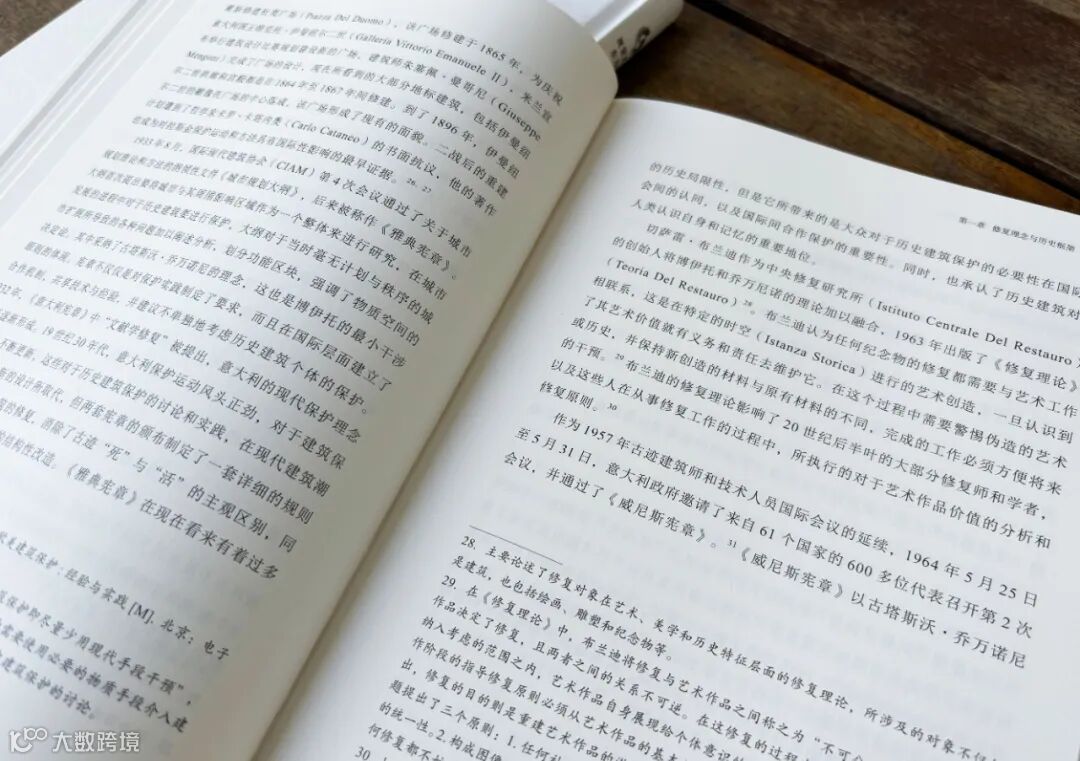 重新修建杜莫广场（Piazza Del Duomo），该广场修建于1865年，为庆祝
意大利国王维克托·伊曼纽尔二世（Galleria Vittorio Emanuele II），米兰宣
布举行建筑设计比赛规划筹设新的广场。建筑师朱塞佩·曼哥尼（Giuseppe
Mengoni）完成了广场的设计，现在所看到的大部分地标建筑，包括伊曼纽
1864年至1867年间修建。到了1896年，伊曼纽
广场的中心落成，该广场形成了现有的面貌。二战后的重建
计划遭到了哲学家卡罗·卡塔内奥（Carlo Cataneo）的书面抗议，他的著作
也成为对后期保护运动和立法具有国际性影响的最早证据。26、27
1933年8月，国际现代建筑协会（CIAM）第4次会议通过了关于城市
规划理论和方法的纲领性文件《城市规划大纲》，后来被称作《雅典宪章》。
大纲首次提出要将城市与其周围影响区域作为一个整体来进行研究，在城市
发展的进程中对于历史建筑要进行保护。大纲对于当时毫无计划与秩序的城
市扩展所导致的各种问题加以阐述分析，划分功能区块，强调了物质空间的
决定论，其中采纳了古塔斯沃·乔万诺尼的理念，这也是博伊托的最小干涉
原则的体现。宪章不仅仅是对保护实践制定了要求，而且在国际层面建立了
合作机制，共享技术与经验，并建议不单独地考虑历史建筑个体的保护。
《意大利宪章》中“文献学修复”被提出，意大利的现代保护理念
逐渐形成。19世纪30年代，意大利保护运动风头正劲，对于建筑保
不断更新，这些对于历史建筑保护的讨论和实践，在现代建筑潮
的设计所取代，但两套宪章的颁布制定了一套详细的规则
的修复，消除了古迹“死”与“活”的主观区别，同
的结构性改造。《雅典宪章》在现在看来有着过多
建筑保护：经验与实践 [M]. 北京：电子
保护即尽量少用现代手段干预”，
需要使用必要的物质手段介入建
建筑保护的讨论。
第一章 修复理念与历史框架
的历史局限性，但是它所带来的是大众对于历史建筑保护的必要性在国际
会间的认同，以及国际间合作保护的重要性。同时，也承认了历史建筑对
人类认识自身和记忆的重要地位。
切萨雷·布兰迪作为中央修复研究所（Istituto Centrale Del Restauro）
的创始人将博伊托和乔万尼诺的理论加以融合，1963年出版了《修复理论》
（Teoria Del Restauro）28。布兰迪认为任何纪念物的修复都需要与艺术工作
相联系，这是在特定的时空（Istanza Storica）进行的艺术创造，一旦认识到
了其艺术价值就有义务和责任去维护它。在这个过程中需要警惕伪造的艺术
或历史，并保持新创造的材料与原有材料的不同，完成的工作必须方便将来
的干预。29布兰迪的修复理论影响了20世纪后半叶的大部分修复师和学者，
以及这些人在从事修复工作的过程中，所执行的对于艺术作品价值的分析和
修复原则。30
作为1957年古迹建筑师和技术人员国际会议的延续，1964年5月25日
至5月31日，意大利政府邀请了来自61个国家的600多位代表召开第2次
会议，并通过了《威尼斯宪章》。31《威尼斯宪章》以古塔斯沃·乔万诺尼
28. 主要论述了修复对象在艺术、美学和历史特征层面的修复理论，所涉及的对象不仅
是建筑，也包括绘画、雕塑和纪念物等。
29. 在《修复理论》中，布兰迪将修复与艺术作品之间称之为“不可分
作品决定了修复，且两者之间的关系不可逆。在这修复的过程
纳入考虑的范围之内，艺术作品自身展现给个体意识的
作阶段的指导修复原则必须从艺术作品的基本
出，修复的目的则是重建艺术作品的
题提出了三个原则：1. 任何补
的统一性。2. 构成图像
何修复都不
30
大数跨境